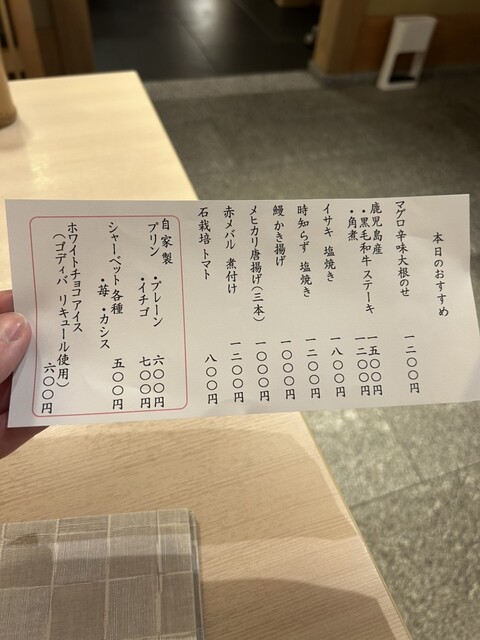 本日のおすすめ
マグロ辛味大根のせ 一二〇〇円
鹿児島産
・黒毛和牛ステーキ 一五〇〇円
・角煮 一二〇〇円
イサキ 塩焼き 一八〇〇円
時知らず 塩焼き 一二〇〇円
鰻かき揚げ 一〇〇〇円
メヒカリ唐揚げ(三本) 一〇〇〇円
赤メバル 煮付け 一二〇〇円
石栽培 トマト 八〇〇円
自家製
プリン ・プレーン 六〇〇円
・イチゴ 七〇〇円
シャーベット各種
・苺 ・カシス 五〇〇円
ホワイトチョコアイス
(ゴディバ リキュール使用) 六〇〇円